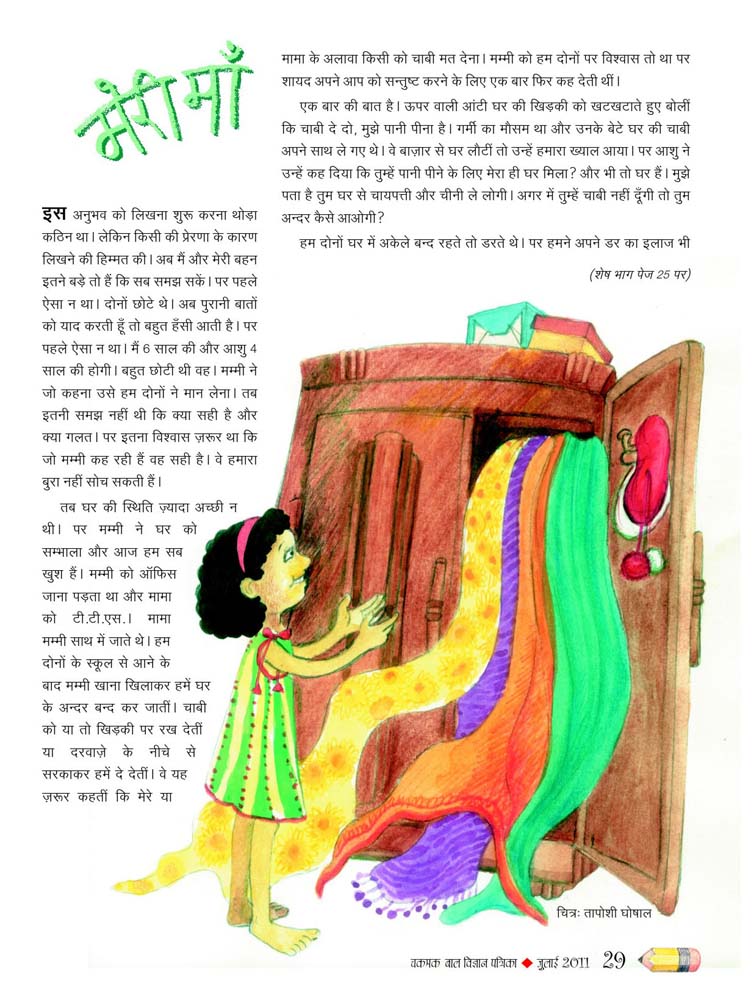 मेरी माँ
इस अनुभव को लिखना शुरू करना थोड़ा
कठिन था। लेकिन किसी की प्रेरणा के कारण
लिखने की हिम्मत की। अब मैं और मेरी बहन
इतने बड़े तो हैं कि सब समझ सकें। पर पहले
ऐसा न था। दोनों छोटे थे। अब पुरानी बातों
को याद करती हूँ तो बहुत हँसी आती है। पर
पहले ऐसा न था। मैं 6 साल की और आशु 4
साल की होगी। बहुत छोटी थी वह। मम्मी ने
जो कहना उसे हम दोनों ने मान लेना। तब
इतनी समझ नहीं थी कि क्या सही है और
क्या गलत। पर इतना विश्वास ज़रूर था कि
जो मम्मी कह रही हैं वह सही है। वे हमारा
बुरा नहीं सोच सकती हैं।
तब घर की स्थिति ज़्यादा अच्छी न
थी। पर मम्मी ने घर को
सम्भाला और आज हम सब
खुश हैं। मम्मी को ऑफिस
जाना पड़ता था और मामा
को टी.टी.एस.। मामा
मम्मी साथ में जाते थे। हम
दोनों के स्कूल से आने के
बाद मम्मी खाना खिलाकर हमें घर
के अन्दर बन्द कर जातीं। चाबी
को या तो खिड़की पर रख देतीं
या दरवाज़े के नीचे से
सरकाकर हमें दे देतीं। वे यह
ज़रूर कहतीं कि मेरे या
मामा के अलावा किसी को चाबी मत देना। मम्मी को हम दोनों पर विश्वास तो था पर
शायद अपने आप को सन्तुष्ट करने के लिए एक बार फिर कह देती थीं।
एक बार की बात है। ऊपर वाली आंटी घर की खिड़की को खटखटाते हुए बोलीं
कि चाबी दे दो, मुझे पानी पीना है। गर्मी का मौसम था और उनके बेटे घर की चाबी
अपने साथ ले गए थे। वे बाज़ार से घर लौटीं तो उन्हें हमारा ख्याल आया। पर आशु ने
उन्हें कह दिया कि तुम्हें पानी पीने के लिए मेरा ही घर मिला? और भी तो घर हैं। मुझे
पता है तुम घर से चायपत्ती और चीनी ले लोगी। अगर में तुम्हें चाबी नहीं दूँगी तो तुम
अन्दर कैसे आओगी?
हम दोनों घर में अकेले बन्द रहते तो डरते थे। पर हमने अपने डर का इलाज भी
(शेष भाग पेज 25 पर)
चित्र: तापोशी घोषाल
चकमक बाल विज्ञान पत्रिका ◆ जुलाई 2011 29